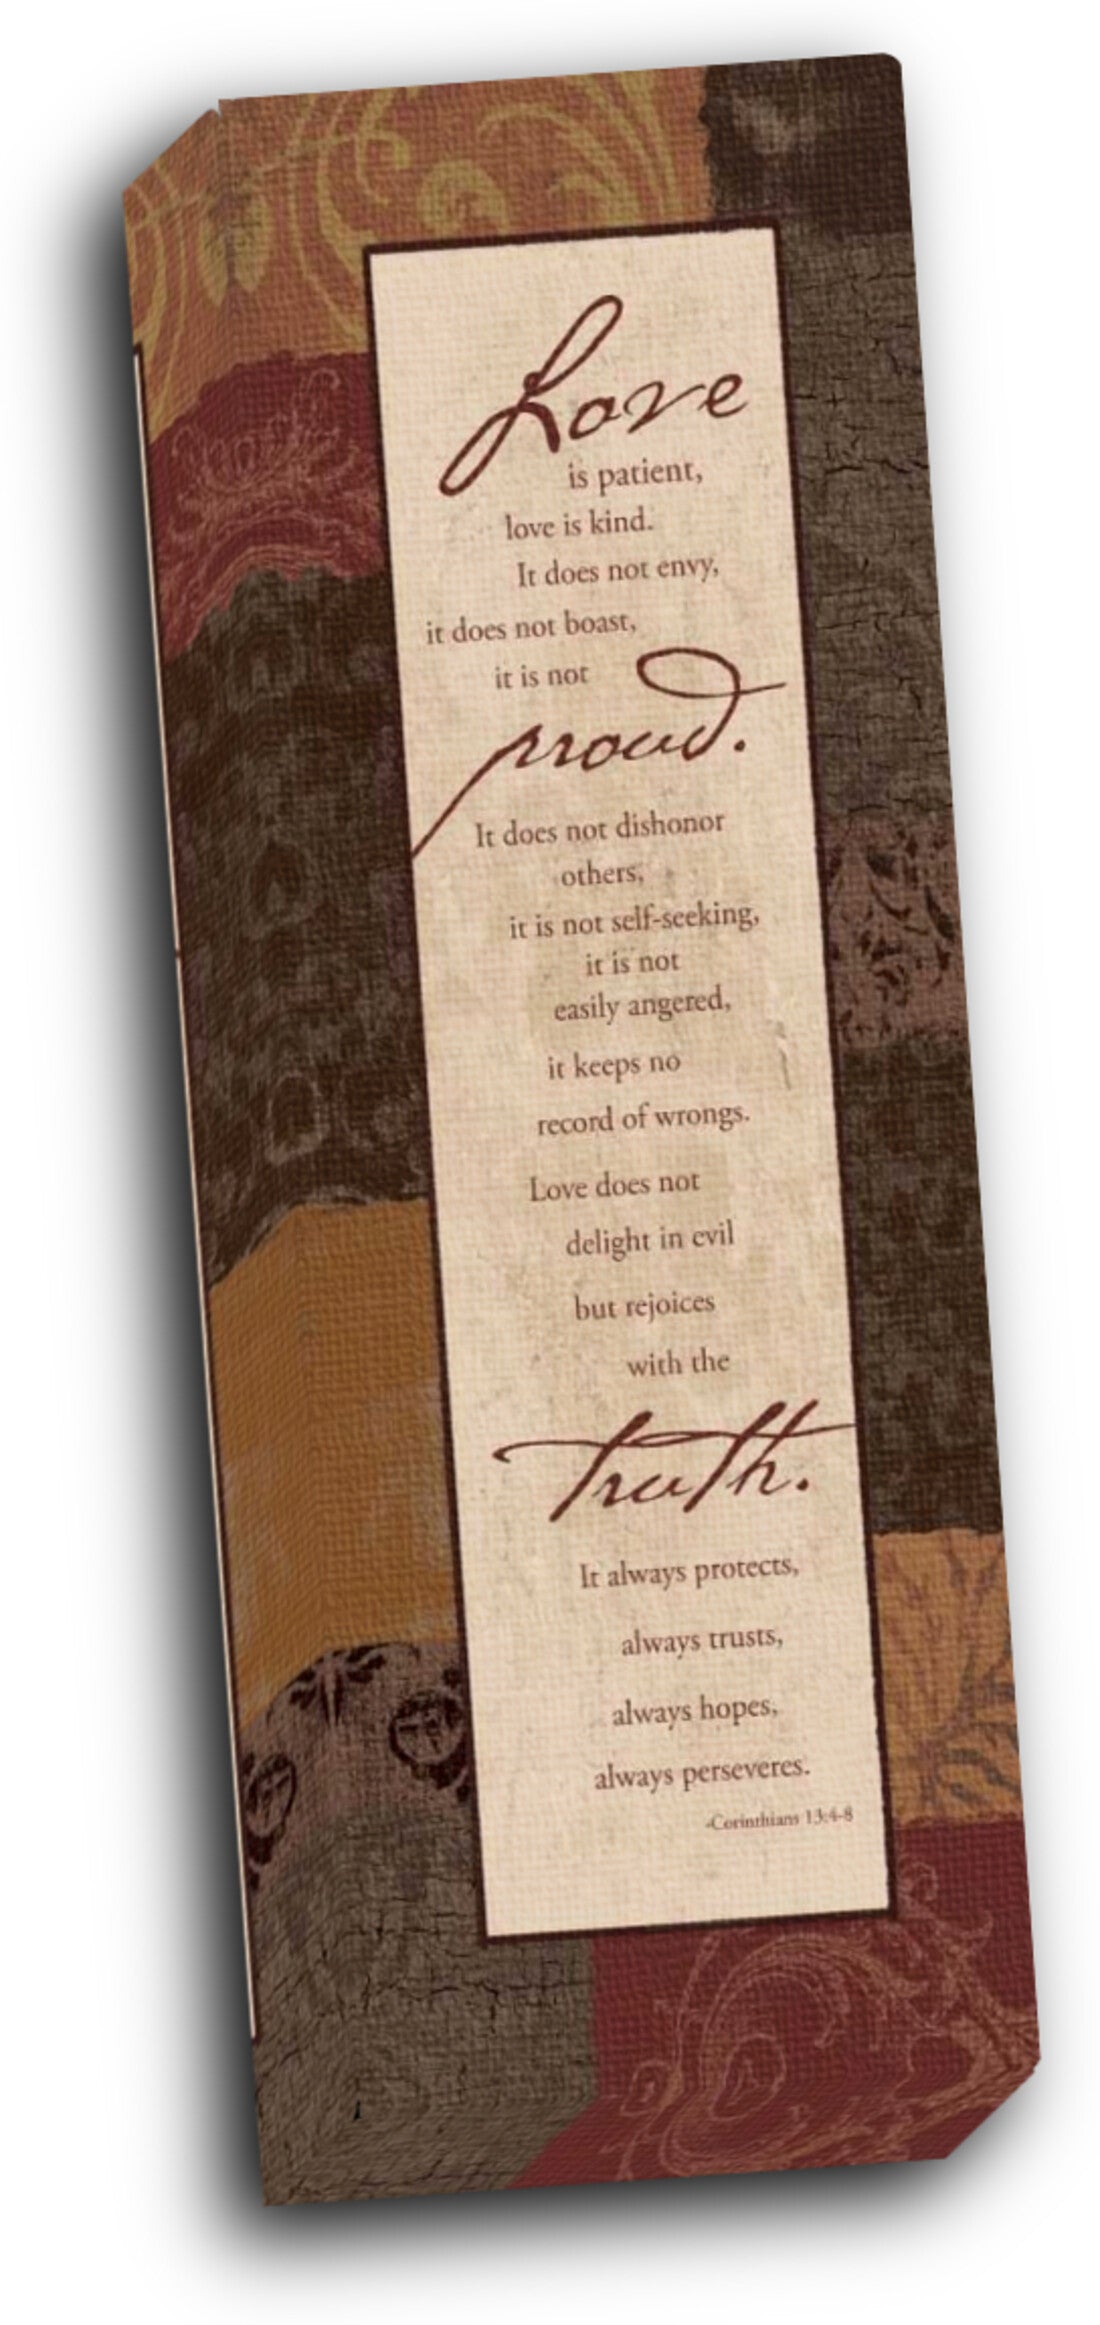 Love
is patient,
love is kind.
It does not envy,
it does not boast,
it is not
proud.
It does not dishonor
others,
it is not self-seeking,
it is not
easily angered,
it keeps no
record of wrongs.
Love does not
delight in evil
but rejoices
with the
truth.
It always protects,
always trusts,
always hopes,
always perseveres.
-Corinthians 13:4-8